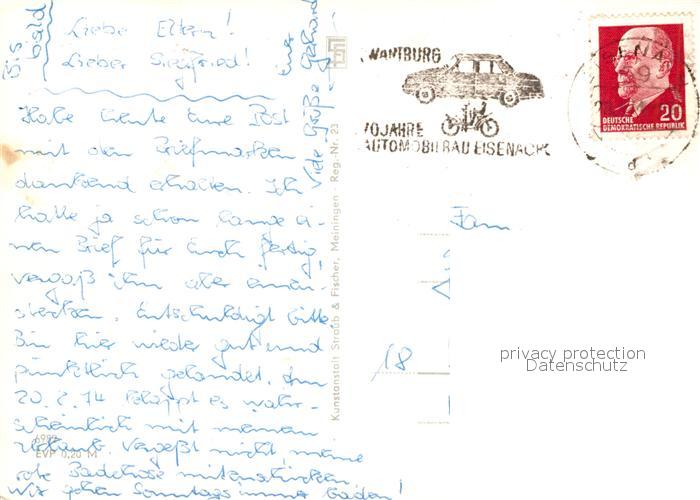 Liebe Eltern!
Lieber Siegfried!
Habe heute eure Post
mit den Briefmarken
dankend erhalten. Ich
hatte ja schon lange ei-
nen Brief für Euch fertig,
vergaß ihn aber einzu-
stecken. Entschuldigt bitte
Bin hier wieder gut und
pünktlich gelandet. Am
20.2.74 klappt es wahr-
scheinlich mit meinem
Urlaub. Vergeßt nicht, meine
rote Badehose mitzuschicken
Wir gehen Sonntags immer baden!
Bis
bald
Viele Grüße
Euer Gerhard
6982
EVP 0,20 M
Kunstanstalt Straub & Fischer, Meiningen Reg.-Nr. 23
WARTBURG
70 JAHRE
AUTOMOBILBAU EISENACH
20
DEUTSCHE
DEMOKRATISCHE REPUBLIK
Fam.
18
privacy protection
Datenschutz